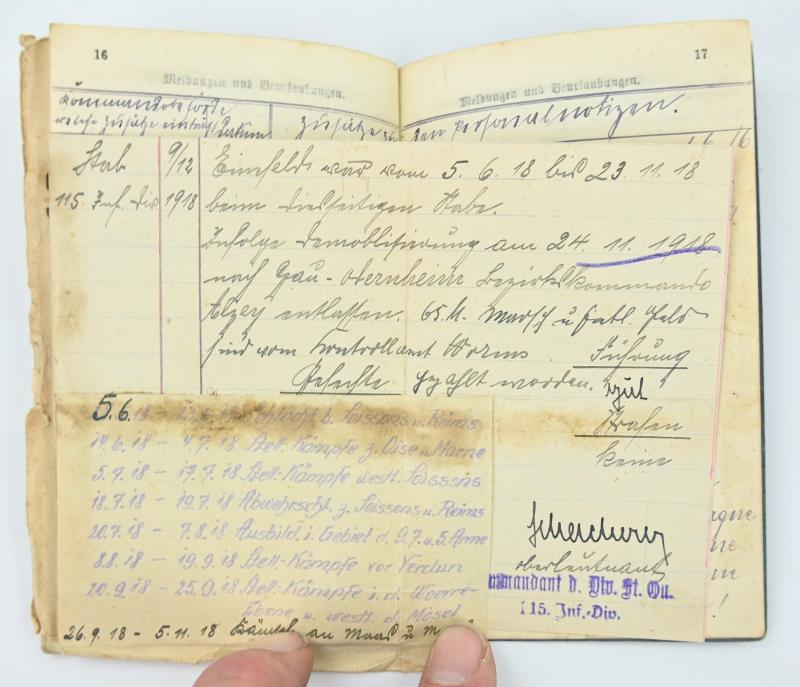 16
17
Meldungen und Beurlaubungen.
Meldungen und Beurlaubungen.
Kommandobehörde
welche Zusätze einträgt Datum
Zusätze zu den Personalnotizen.
Stab 9/12
115. Inf. Div 1918
Einsfeld war vom 5. 6. 18 bis 23. 11. 18
beim diesseitigen Stabe.
Infolge Demoblisierung am 24. 11. 1918
nach Gau-Odernheim Bezirkskommando
Alzey entlassen. 65 M. Marsch u Entl. Geld
sind vom Kontrollamt Worms
gezahlt worden.
Führung
gut
Strafen
keine
Gefechte
5.6.18 - 13.6.18 Schlacht b. Soissons u. Reims
14.6.18 - 4.7.18 Stell-Kämpfe z. Oise u. Marne
5.7.18 - 17.7.18 Stell-Kämpfe westl. Soissons
18.7.18 - 19.7.18 Abwehrschl. z. Soissons u. Reims
20.7.18 - 7.8.18 Ausbild. i. Gebiet d. 9. 7. u. 5. Arme
8.8.18 - 19.9.18 Stell-Kämpfe vor Verdun
20.9.18 - 25.9.18 Stell-Kämpfe i. d. Woevre-
Ebene u. westl. d. Mosel
26.9.18 - 5.11.18 Kämpfe an Maas u
Oberleutnant
mmandant d. Div. St. Qu.
115. Inf.-Div.